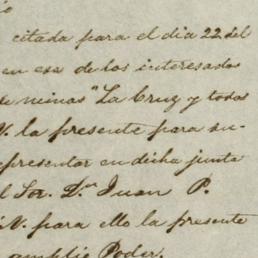 citada para el dia 22 del
en esa de los interesados
de minas "La Cruz y todos
V. la presente para su-
epresentar en dicha junta
l Sr. Dn Juan P.
V. para ello la presente
amplio Poder.